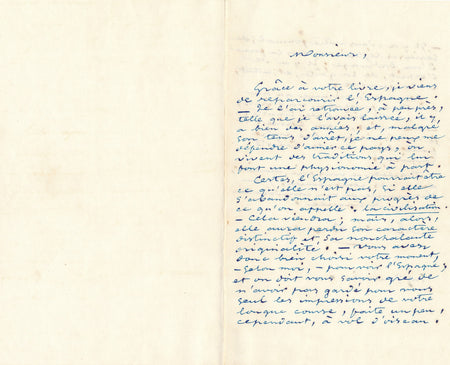 Monsieur,
Grâce à votre livre, je viens
de reparcourir l'Espagne.
— Je l'ai retrouvée, à peu près,
telle que je l'avais laissée, il y
a bien des années; et, malgré
son tems d'arrêt, je ne peux me
défendre d'aimer ce pays, où
vivent des traditions qui lui
font une physionomie à part.
Certes, l'Espagne pourrait être
ce qu'elle n'est pas, si elle
s'abandonnait aux progrès de
ce qu'on appelle : la civilisation.
— Cela viendra; mais, alors,
elle aura perdu son caractère
distinctif et sa nonchalante
originalité. — Vous avez
donc bien choisi votre moment,
— selon moi, — pour voir l'Espagne;
et on doit vous savoir gré de
n'avoir pas gardé pour vous
seul les impressions de votre
longue course, faite un peu,
cependant, à vol d'oiseau.